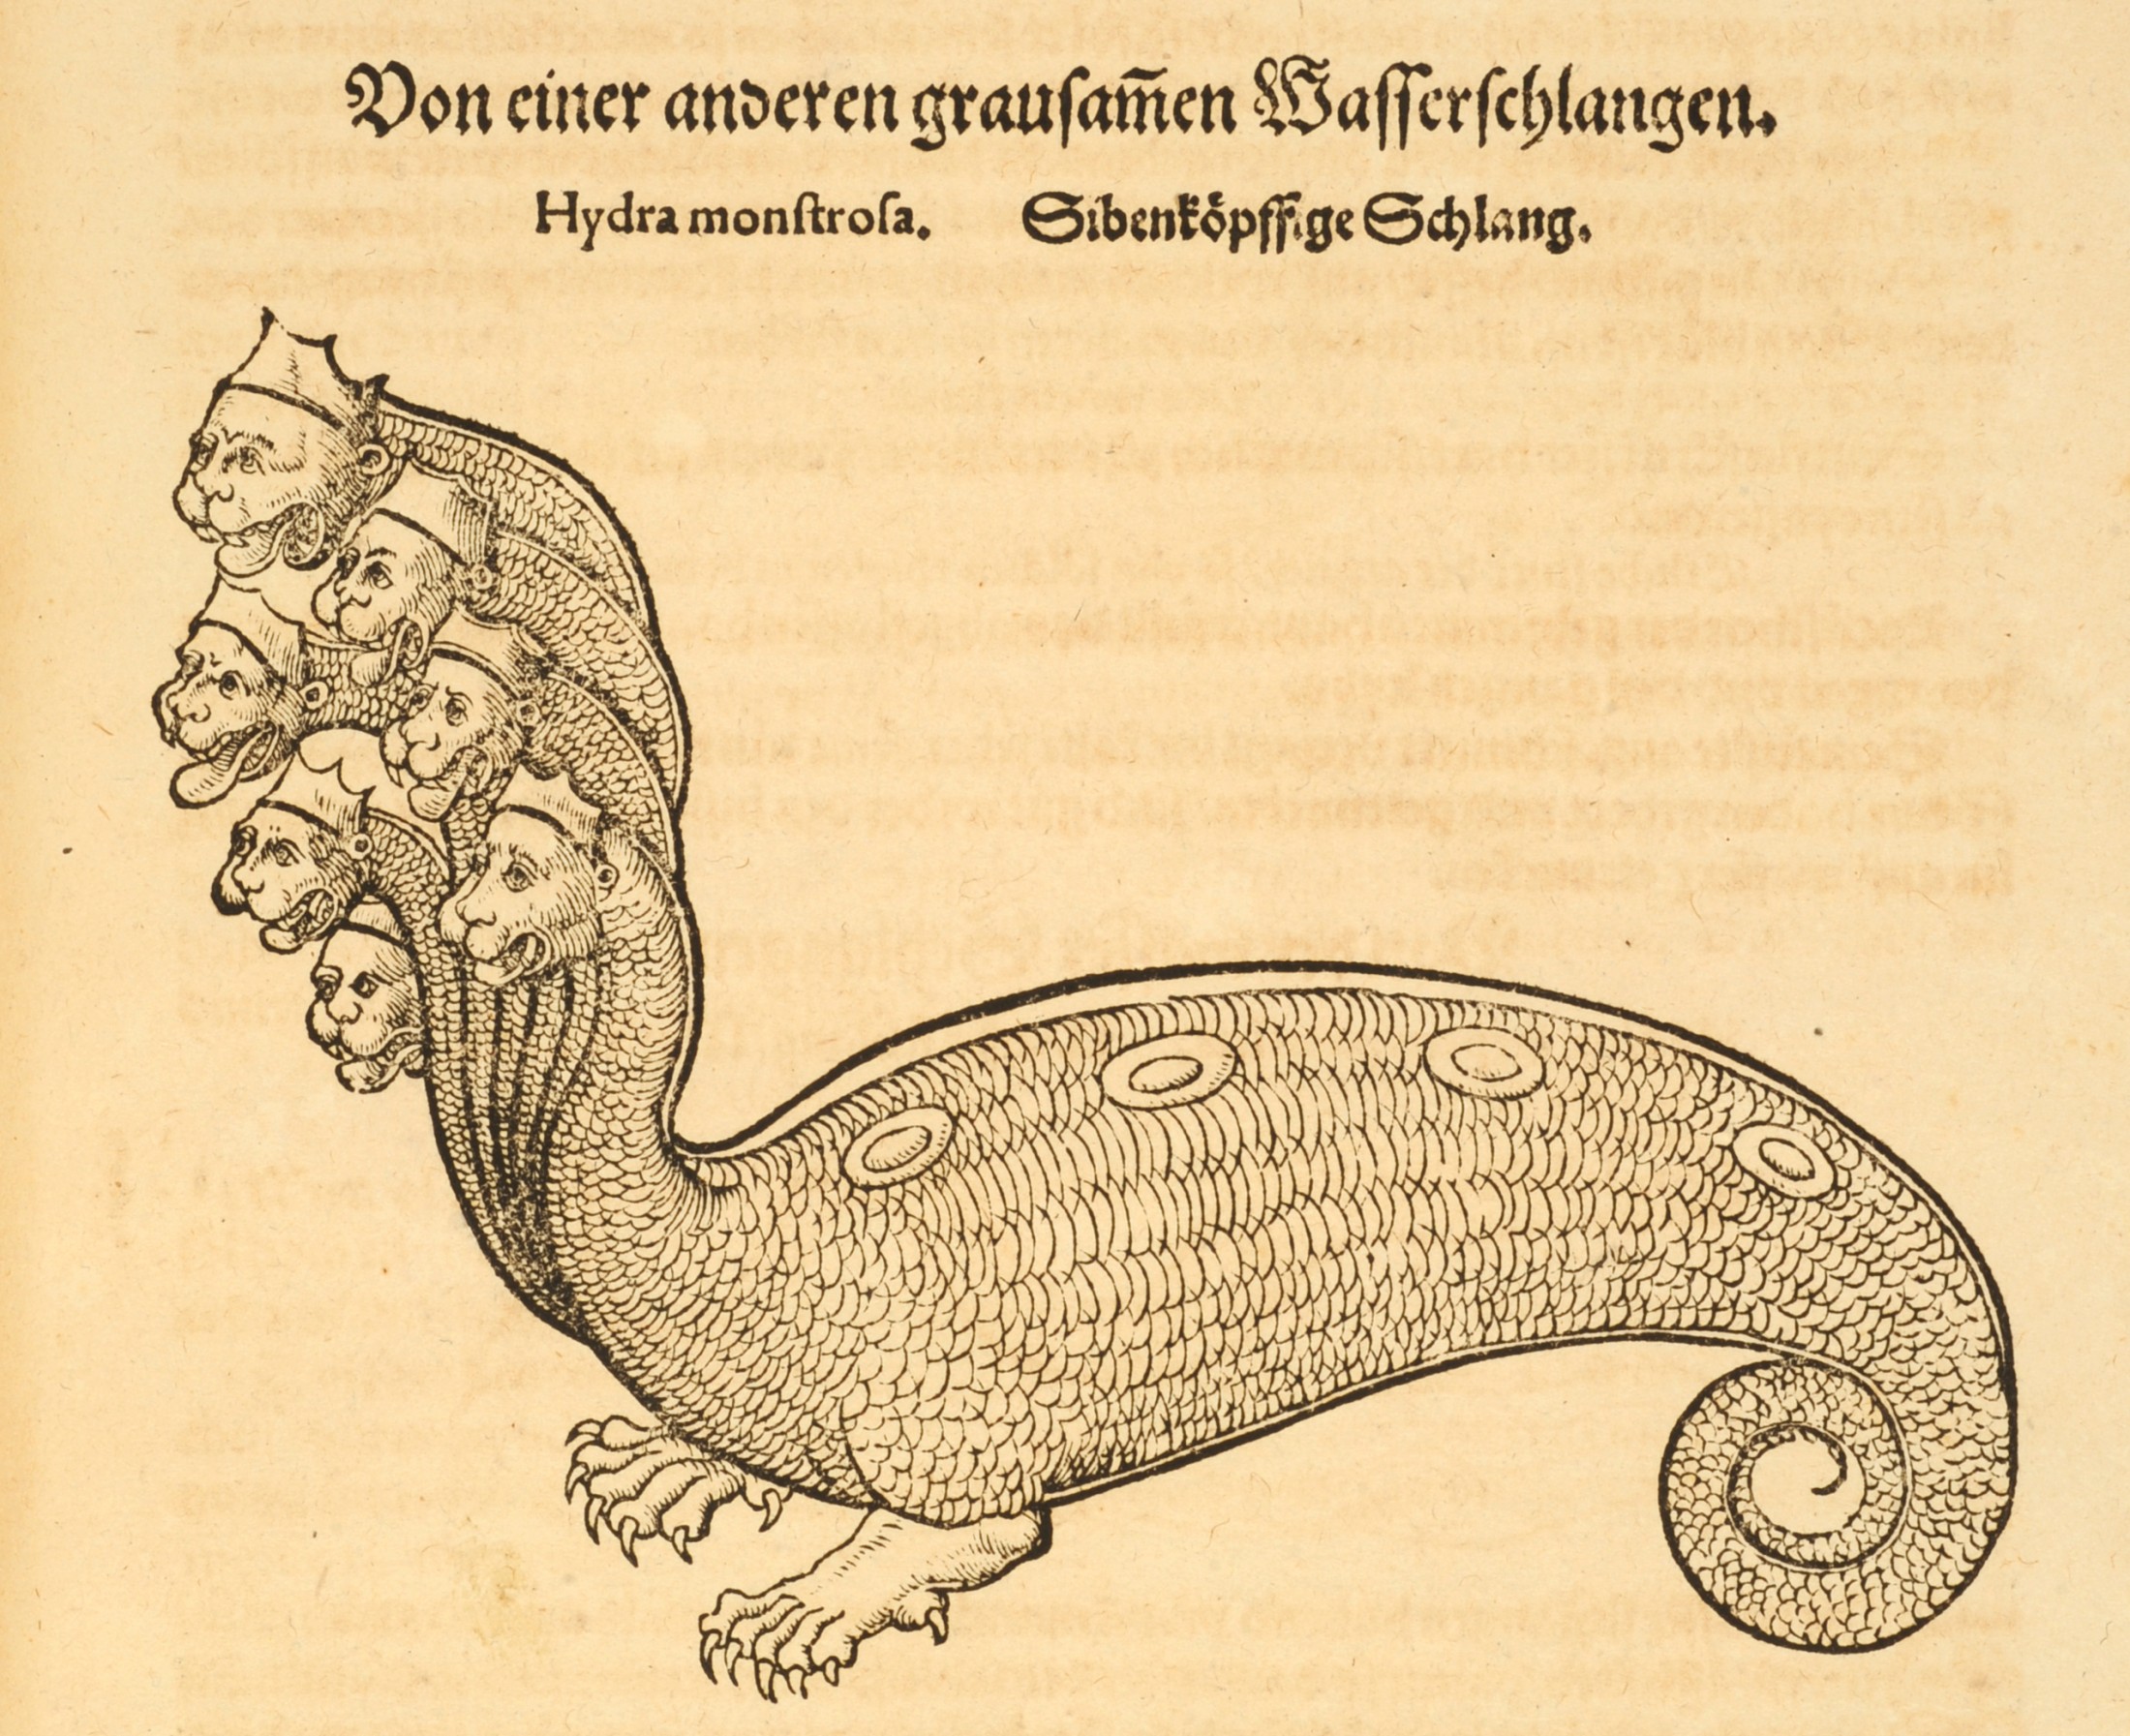 Von einer anderen grauſam̄en Waſſerſchlangen.
Hydra monſtroſa. Sibenköpffige Schlang.